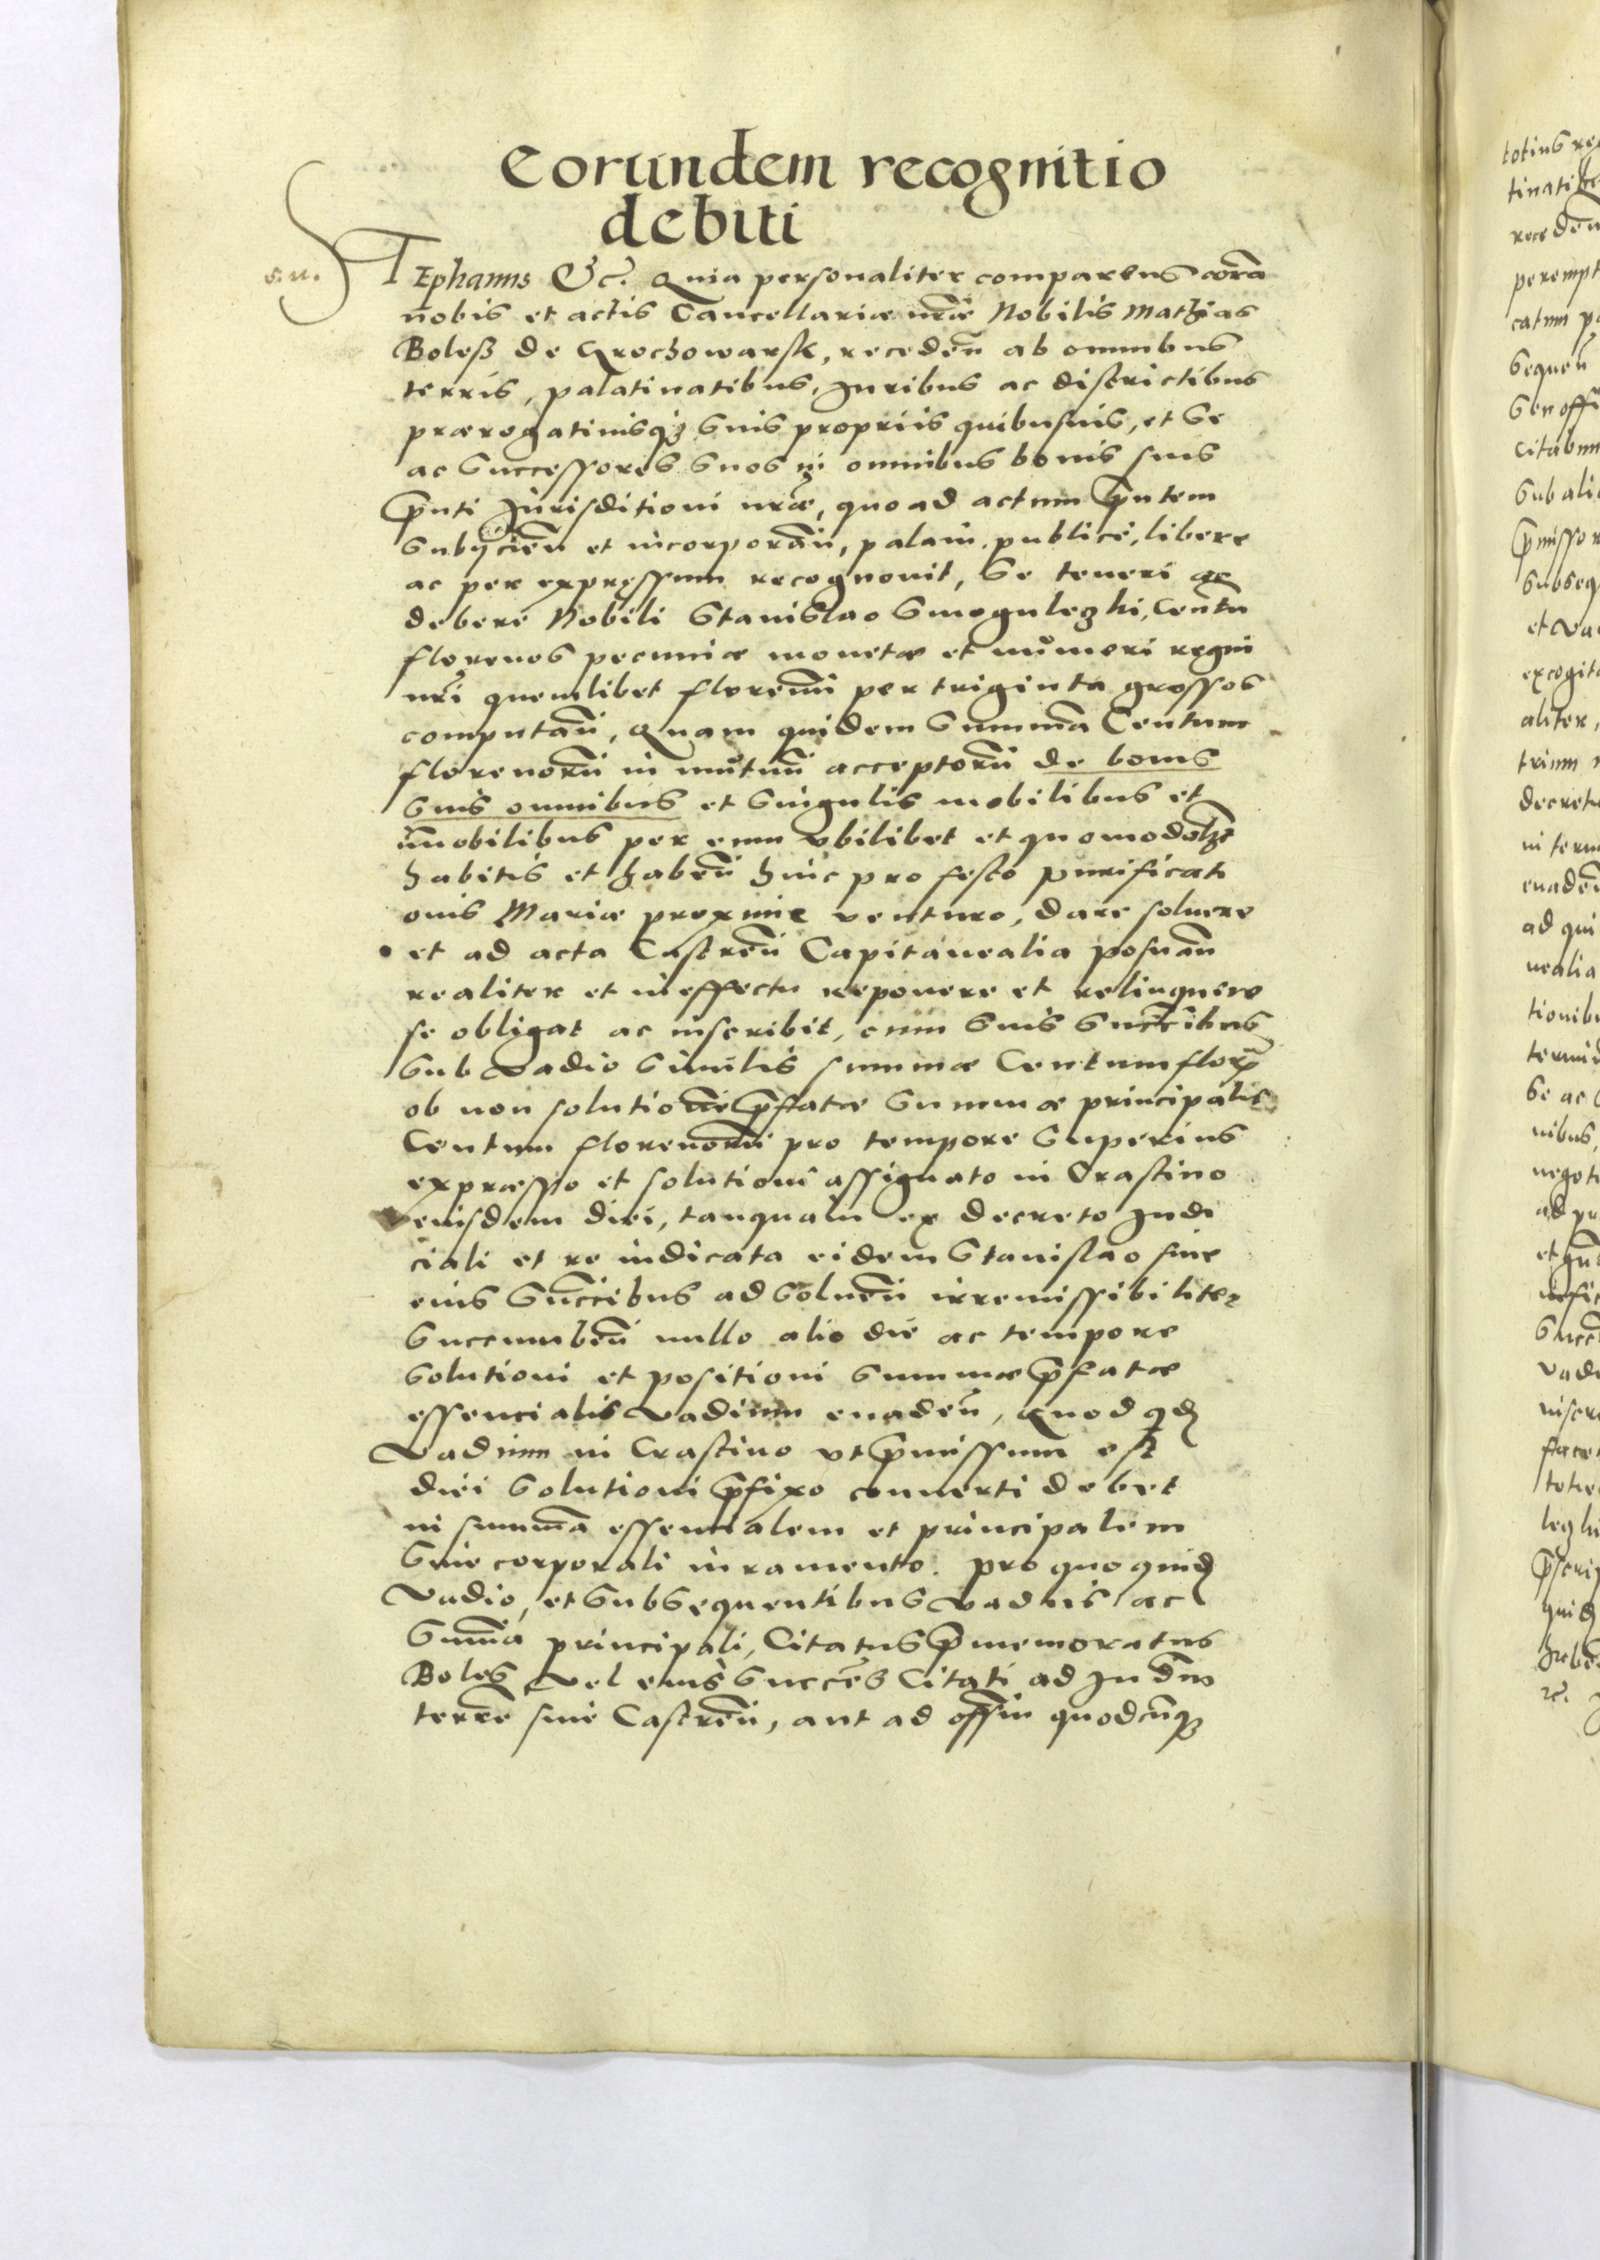 Eorundem recognitio
debiti
STEphanus &c. Quia personaliter comparens corā
nobis et actis Cancellariæ nr̄æ Nobilis Mathias
Boleß de Grochowarsk, recedeñ ab omnibus
terris, palatinatibus, Juribus ac districtibus
prærogatiuisqꝫ suis propriis quibusuis, et se
ac successores suos in omnibus bonis suis
p̄nti Jurisditioni nr̄æ, quo ad actum p̄ntem
subÿcieñ et incorporañ, palam, publice, libere
ac per expressum recognouit, se teneri ac
debere Nobili Stanislao Smoguleczki, Centū
florenos pecuniæ monetæ et numeri regni
nr̄i quemlibet florenū per triginta grossos
computañ, Quam quidem summā Centum
florenorū in mutuū acceptorū de bonis
suis omnibus et singulis mobilibus et
im̄obilibus per eum vbilibet et quomodolibꝫ
habitis et habeñ huic pro festo purificati
onis Mariæ proxime venturo, dare soluere
et ad acta Castreñ Capitanealia Posnañ
realiter et in effectu reponere et relinquere
se obligat ac inscribit, cum suis succ̄ibus
sub vadio similis summæ Centum floꝝ
ob non solutionē p̄fatæ summæ principalis
Centum florenorū pro tempore superius
expræsso et solutioni assignato in Crastino
eiusdem diei, tanquam ex decreto Judi
ciali et re iudicata eidem Stanislao siue
eius succ̄ibus ad solueñ irremissibiliter
succumbeñ nullo alio die ac tempore
solutioni et positioni summæ p̄fatæ
essencialis vadium euadeñ, Quod qd̄
Vadium in Crastino vt p̄missum est
diei solutioni p̄fixo conuerti debet
in summā essentialem et principalem
siue corporali iuramento. pro quo quid̄
Vadio, et subsequentibus vadiis ac
summa principali, Citatus p̄memoratus
Boles vel eius succ̄es Citati ad Jud̄m
terrē siue Castreñ, aut ad off̄m quodcunqꝫ